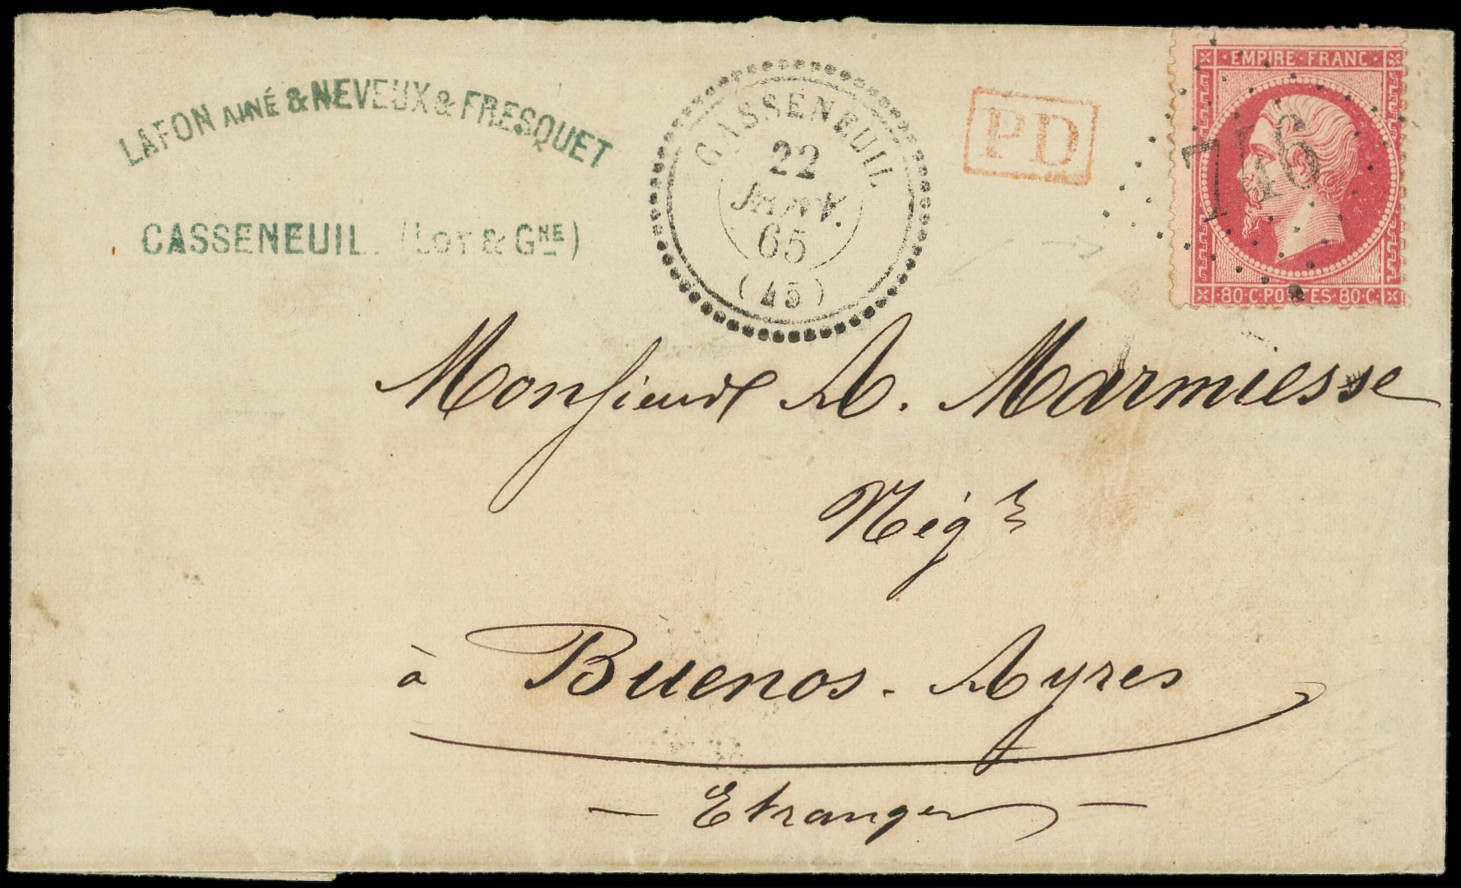 LAFON AINÉ & NEVEUX & FRESQUET
CASSENEUIL (LOT & GNE)
CASSENEUIL
22
JANV.
65
(45)
PD
EMPIRE · FRANC ·
746
· 80 C · POSTES · 80 C ·
Monsieur A. Marmiesse
Nég.t
à Buenos-Ayres
- Etranger -